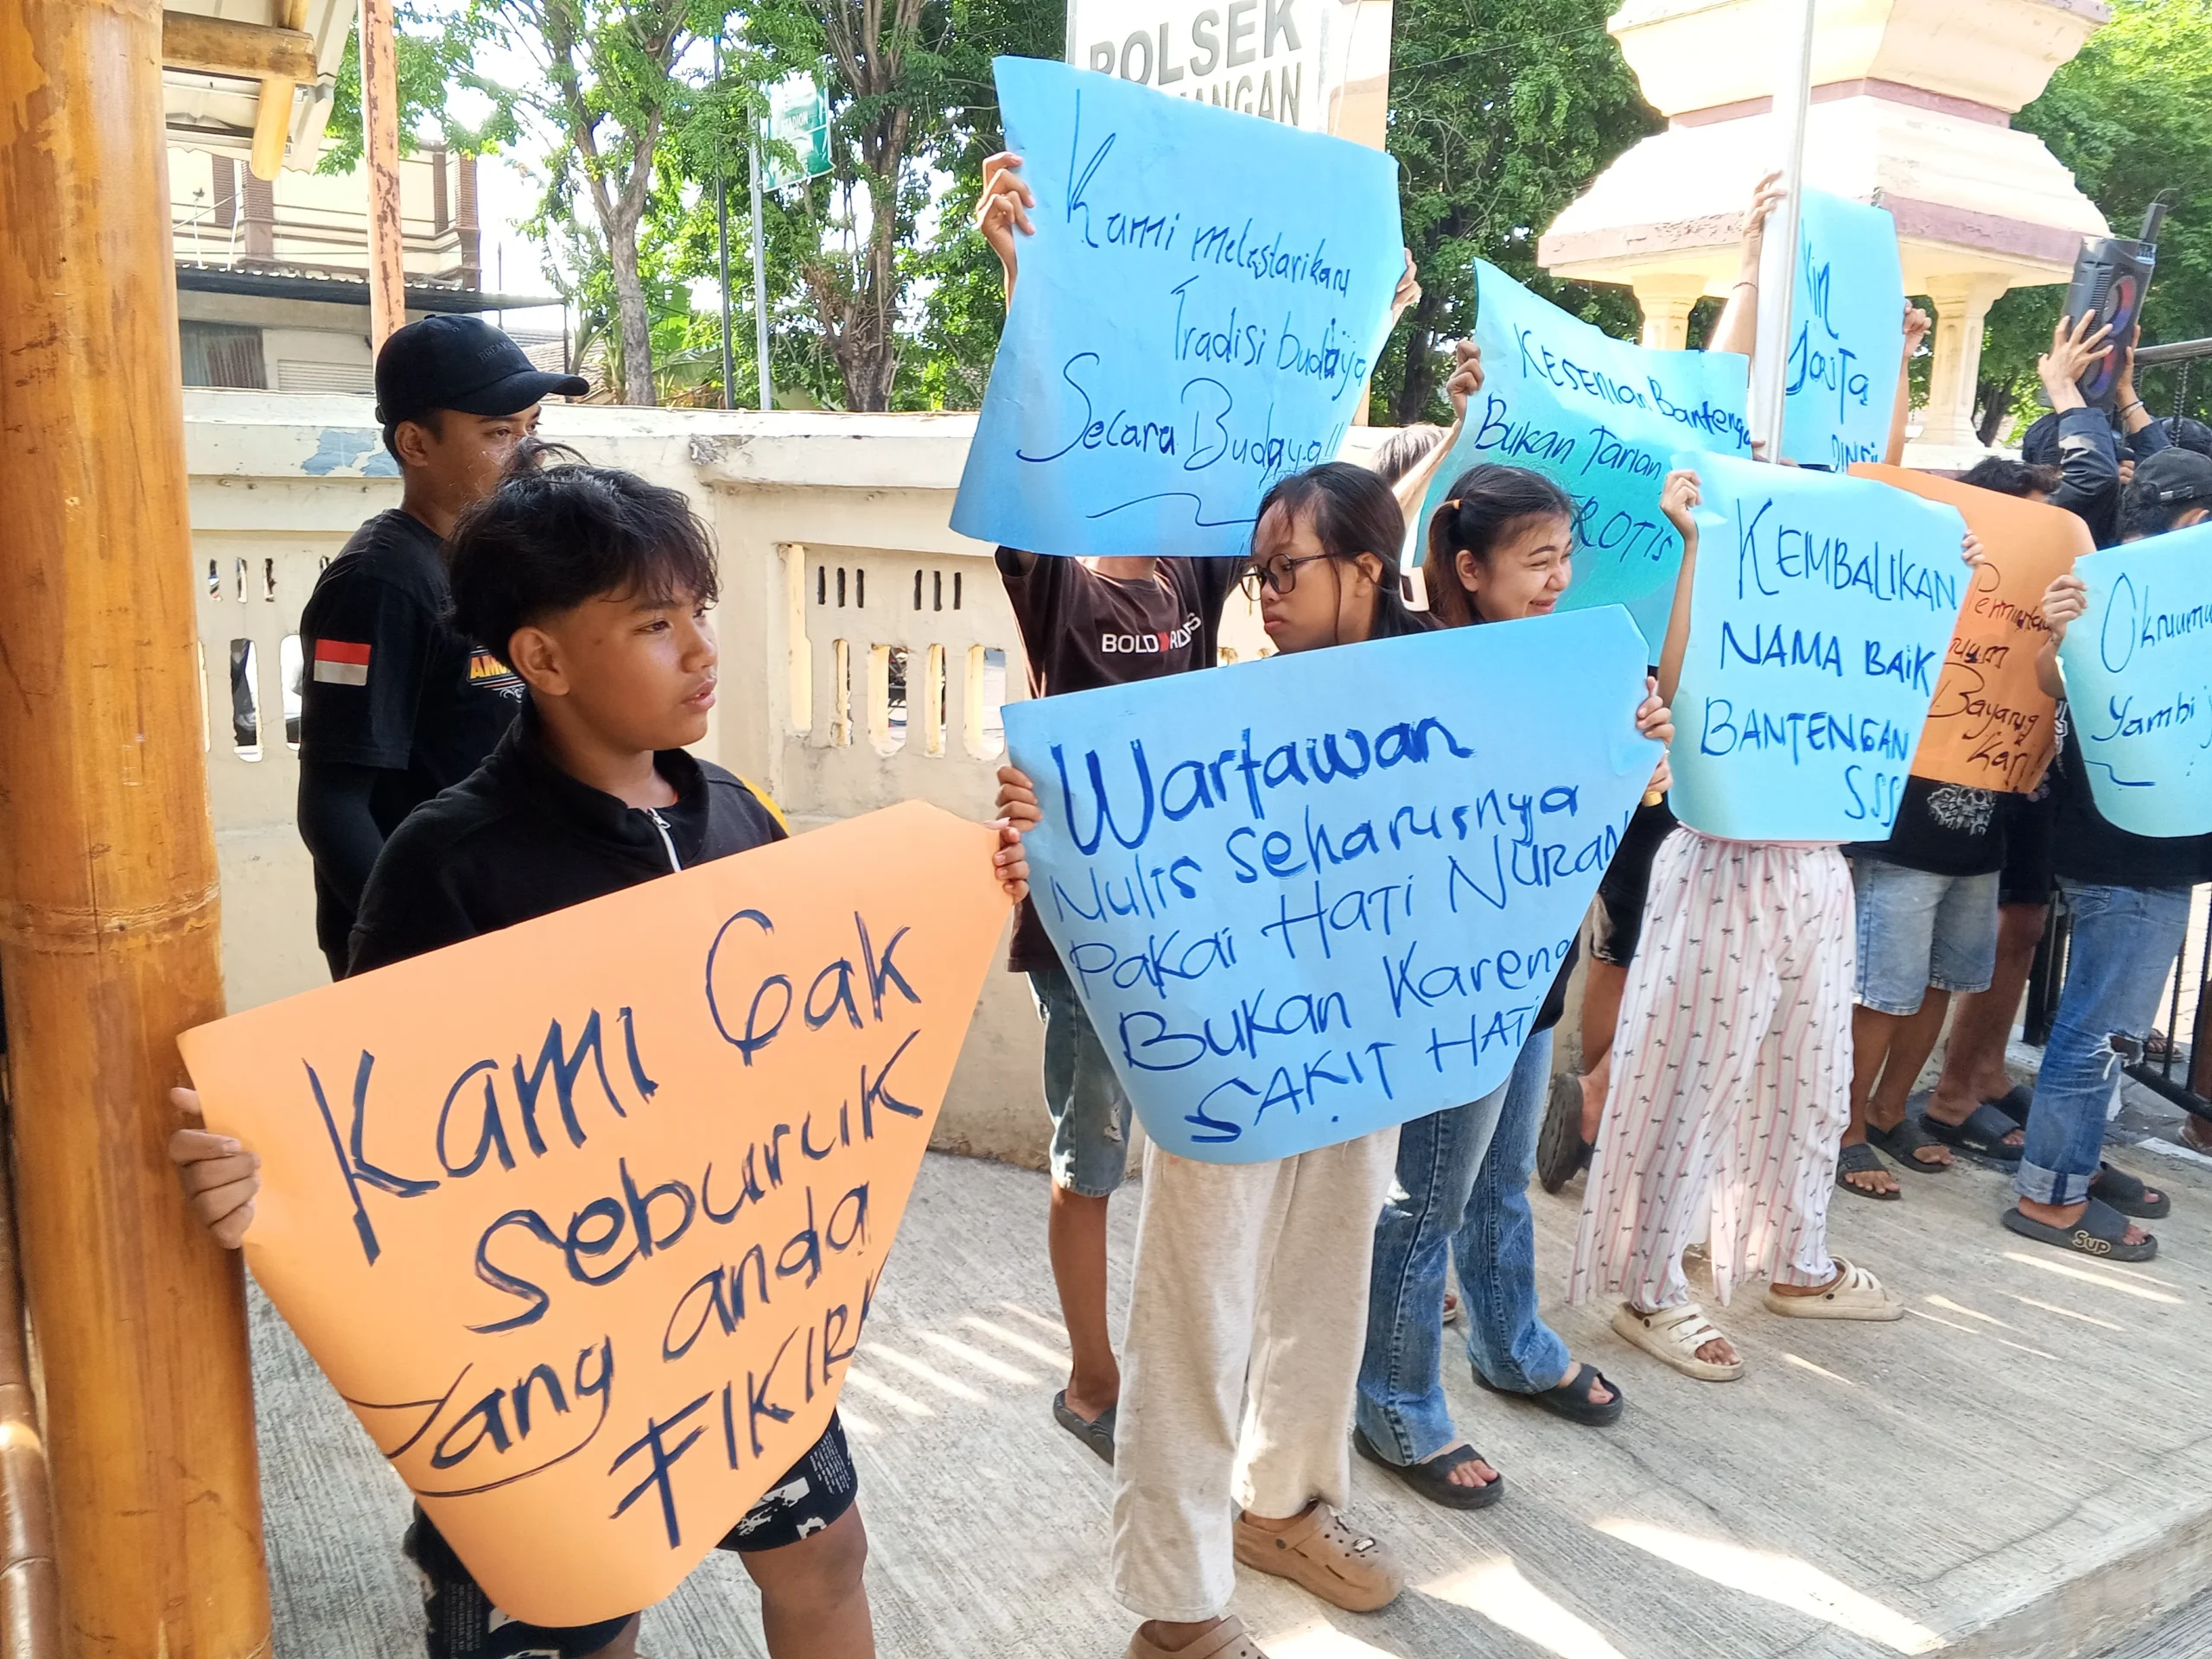 POLSEK
Kami melestarikan
Tradisi budaya
Secara Budaya!!
KESENIAN Bantengan
Bukan Tarian
EROTIS
KEMBALIKAN
NAMA BAIK
BANTENGAN
SSS
Permintaan
Bayang
kari
Oknum
BOLD
Wartawan
Nulis seharusnya
Pakai Hati NURANI
Bukan Karena
SAKIT HATI
Kami Gak
seburuk
yang anda
FIKIR!!
Sup